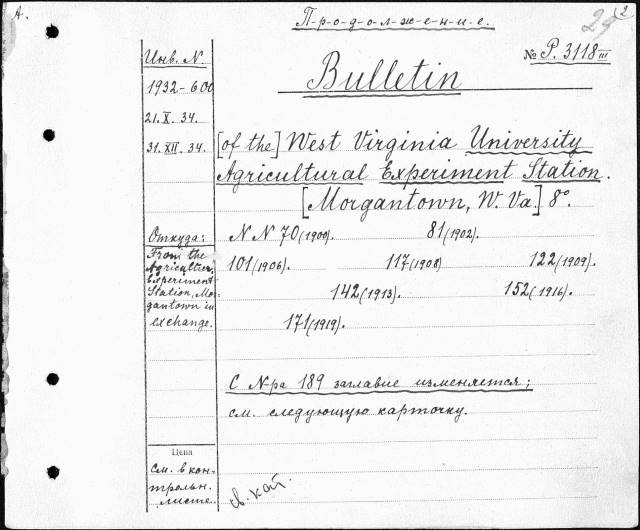 А.
П-р-о-д-о-л-ж-е-н-и-е.
2
№ P. 3118 III
Инв. N.
Bulletin
1932-600
21. X. 34.
31. XII. 34.
[of the] West Virginia University
Agricultural Experiment Station.
[Morgantown, W. Va.] 8°.
Откуда:
From the
Agricultur.
Experiment
Station, Mor-
gantown in
exchange.
N N 70 (1900). 81 (1902).
101 (1906). 117 (1908) 122 (1909).
142 (1913). 152 (1916).
171 (1919).
С N-ра 189 заглавие изменяется;
см. следующую карточку.
Цена
См. в кон-
трольн.
листе.
кат.